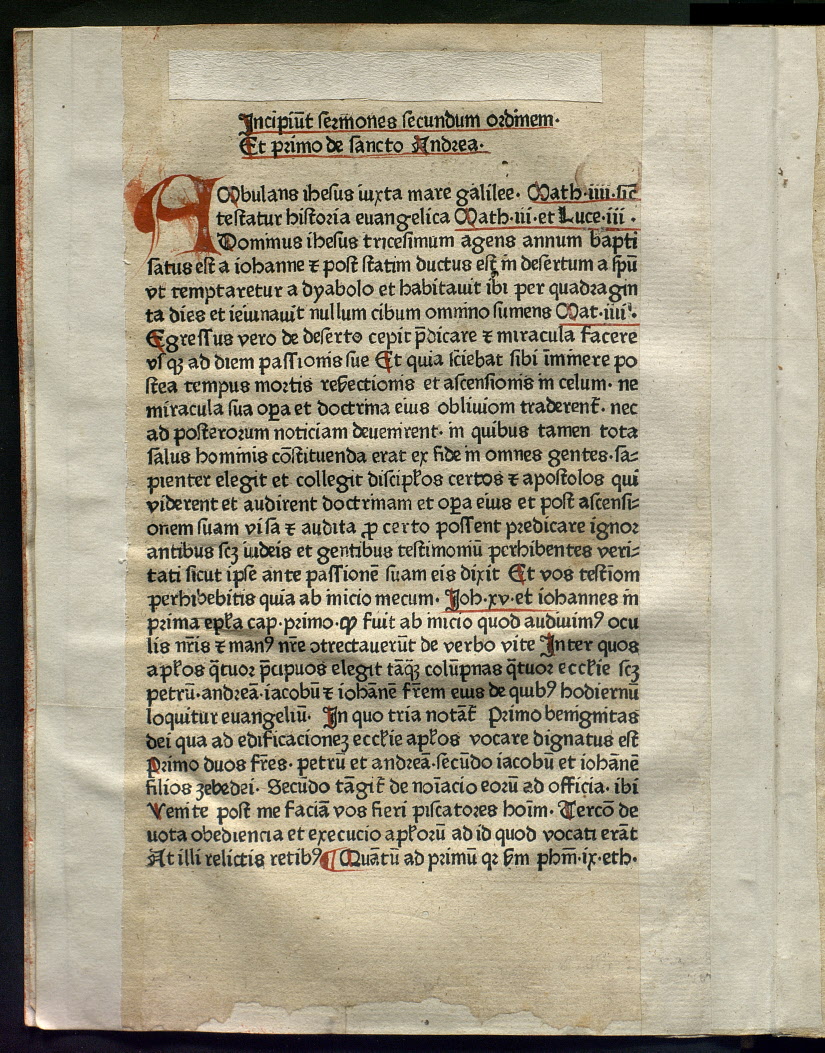 Incipiūt sermones secundum ordinem·
Et primo de sancto Andrea·
AMbulans ihesus iuxta mare galilee· Math·iiii·sic̄
testatur historia euangelica Math·iii·et Luce·iii·
Dominus ihesus tricesimum agens annum bapti
satus est a iohanne ⁊ post statim ductus est in desertum a spū
vt temptaretur a dyabolo et habitauit ibi per quadragin
ta dies et ieiunauit nullum cibum omnino sumens Mat·iiii·
Egressus vero de deserto cepit p̄dicare ⁊ miracula facere
vsqꝫ ad diem passionis sue Et quia sciebat sibi īminere po
stea tempus mortis resectionis et ascensionis in celum· ne
miracula sua oꝑa et doctrina eius obliuioni traderent̄· nec
ad posterorum noticiam deuenirent· in quibus tamen tota
salus hominis cōstituenda erat ex fide in omnes gentes·sa⸗
pienter elegit et collegit discipłos certos ⁊ apostolos qui
viderent et audirent doctrinam et oꝑa eius et post ascensi⸗
onem suam visa ⁊ audita ꝓ certo possent predicare ignor
antibus scꝫ iudeis et gentibus testimoniū perhibentes veri⸗
tati sicut ipse ante passionē suam eis dixit Et vos testiom
perhibebitis quia ab inicio mecum· Joh·xv·et iohannes in
prima epła cap·primo·Qꝫ fuit ab inicio quod audiuimꝰ ocu
lis nr̄is ⁊ manꝰ nr̄e ɔtrectauerūt de verbo vite Inter quos
apłos q̄tuor p̄cipuos elegit tāqꝫ colūpnas q̄tuor eccłie scꝫ
petrū·andreā·iacobū ⁊ iohānē fr̄em eius de quibꝰ hodiernū
loquitur euangeliū· In quo tria notāt̄ Primo benignitas
dei qua ad edificacioneꝫ eccłie apłos vocare dignatus est
Primo duos fr̄es· petrū et andreā·secūdo iacobū et iohānē
filios ꝫebedei· Secūdo tāgit̄ de noīacio eorū ad officia· ibi
Venite post me faciā vos fieri piscatores hoīm· Tercō de
uota obediencia et execucio apłorū ad id quod vocati erāt
At illi relictis retibꝰ ¶ Quātū ad primū qr sm phm̄·ix·eth·